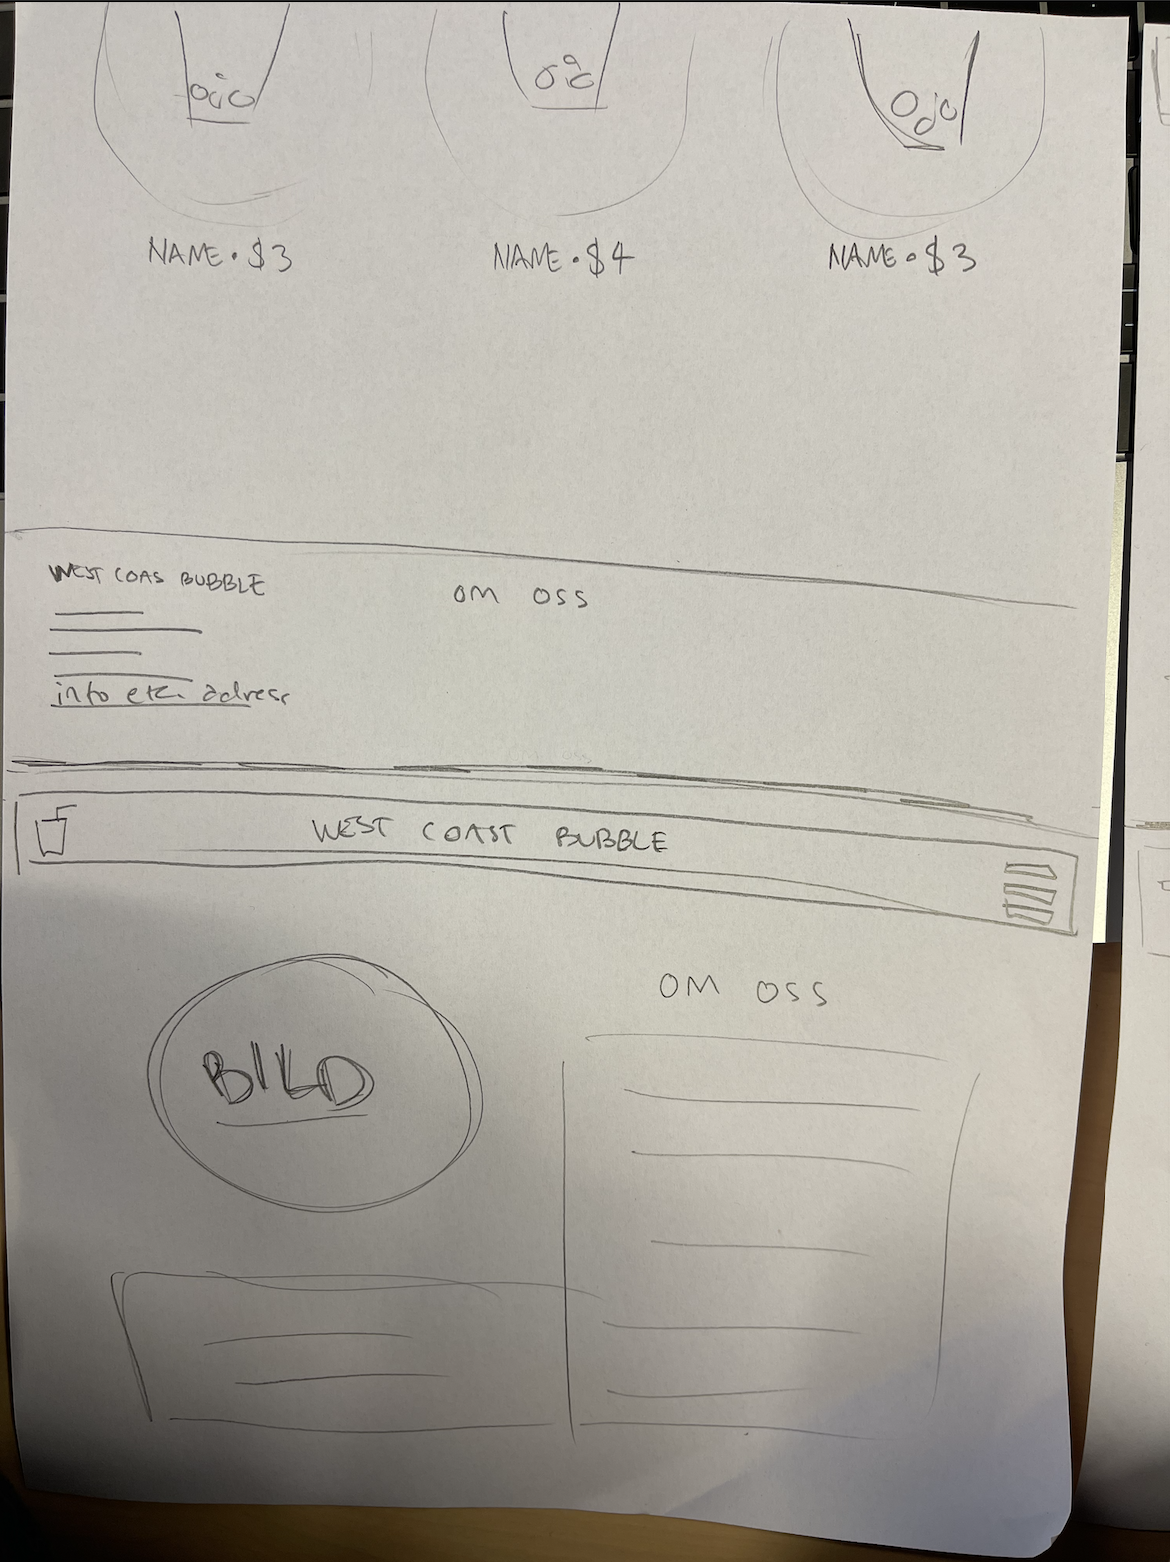 NAME • $3
NAME • $4
NAME • $3
WEST COAS BUBBLE
OM OSS
info etc. adress
WEST COAST BUBBLE
OM OSS
BILD